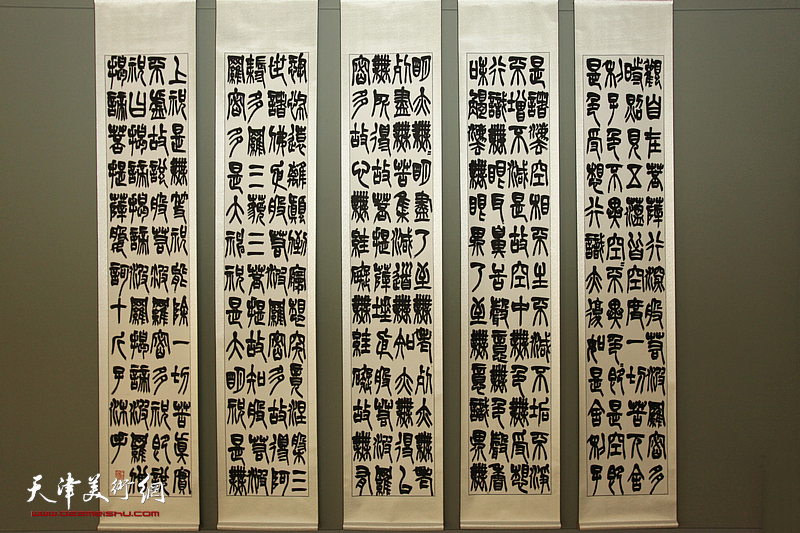 觀自在菩薩行深般若波羅密多
時照見五蘊皆空度一切苦厄舍
利子色不異空〻不異色〻即是空〻即
是色受想行識亦復如是舍利子
是諸法空相不生不滅不垢不淨
不增不減是故空中無色無受想
行識無眼耳鼻舌身意無色聲香
味觸法無眼界乃至無意識界無
明亦無〻明盡乃至無老死亦無老
死盡無苦集滅道無知亦無得以
無所得故菩提薩埵依般若波羅
密多故心無罣礙無罣礙故無有
恐怖遠離顛倒夢想究竟涅槃三
世諸佛依般若波羅密多故得阿
耨多羅三藐三菩提故知般若波
羅密多是大神咒是大明咒是無
上咒是無等〻咒能除一切苦真實
不虛故說般若波羅密多咒即說
咒曰揭諦揭諦波羅揭諦波羅僧
揭諦菩提薩婆訶十八子沐手
天津美術網
www.022meishu.com